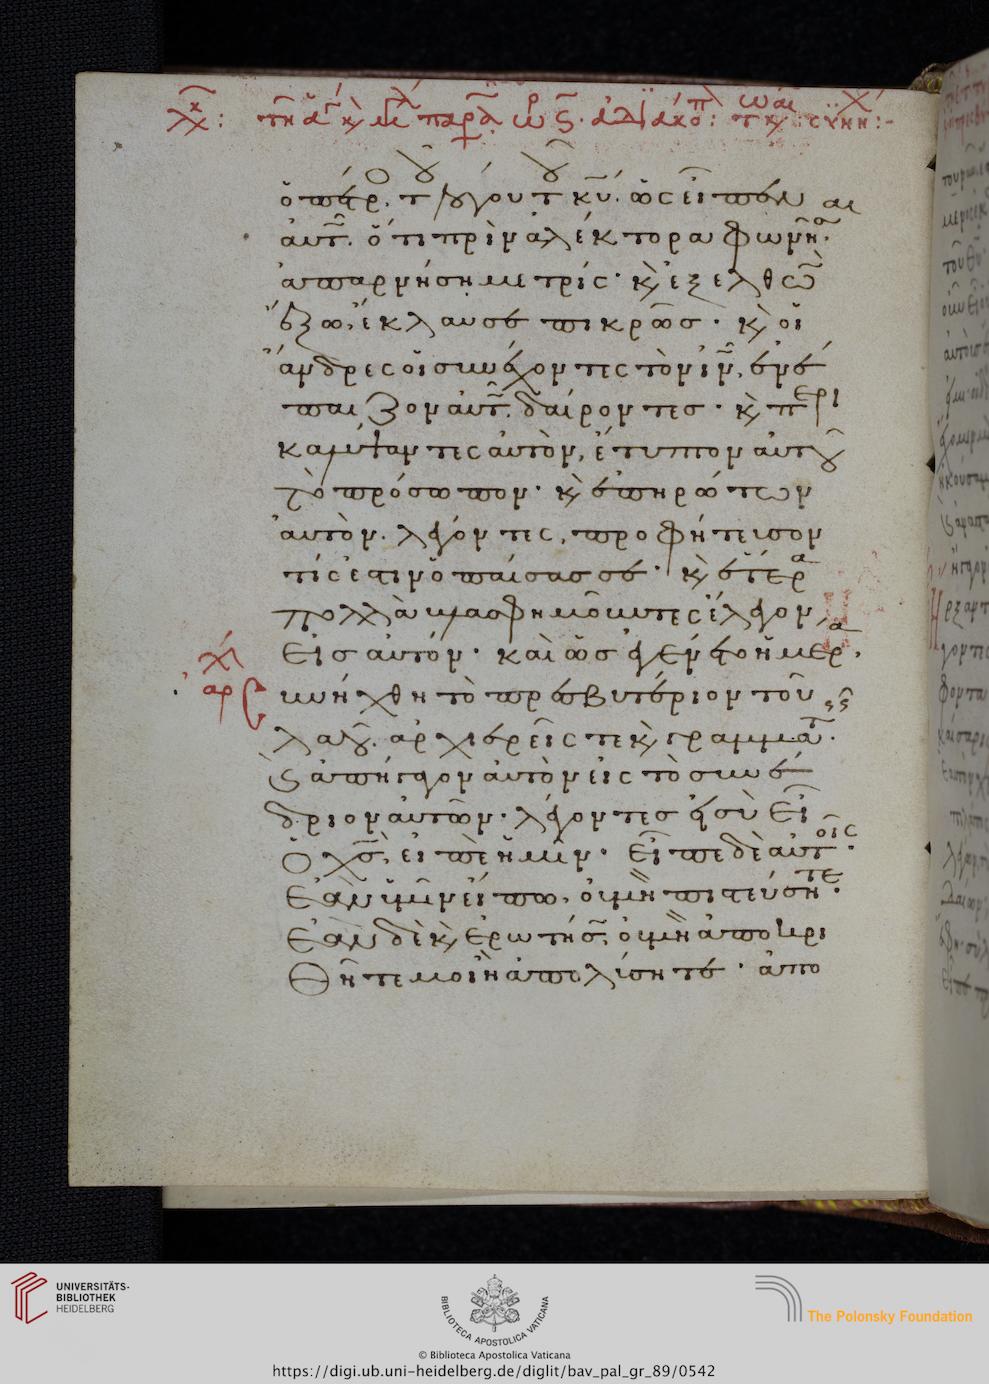 ὁ πέτρ. τοῦ λόγου τοῦ κυ. ὡς εἶπεν
αὐτῶ. ὅτι πρὶν ἀλέκτορα φωνῆσαι.
ἀπαρνήση με τρίς. κ ἐξελθὼν
ἔξω, ἔκλαυσε πικρῶσ. κ οἱ
ἄνδρες οἱ συνέχοντες τὸν ιν, ἐνέ
παιζον αὐτῶ. δαίροντεσ. κ περι
καλύψαντες αὐτὸν, ἔτυπτον αὐτοῦ
τὸ πρόσωπον. κ ἐπηρώτων
αὐτὸν. λέγοντες, προφήτευσον
τίς ἐστιν ὁ παίσασ σε. κ ἕτερα
πολλὰ βλασφημοῦντες ἔλεγον
εἰσ αὐτόν. καὶ ὡσ ἐγένετο ἡμέρα,
συνήχθη τὸ πρεσβυτέριον τοῦ
λαοῦ. ἀρχιερεῖς τε κ γραμματεῖς.
κ ἀπήγαγον αὐτὸν εἰς τὸ συνέ
δριον αὐτῶν. λέγοντεσ εἰ σὺ εἶ
ὁ χσ, εἰπὲ ἡμῖν. εἶπε δὲ αὐτοῖς.
ἐὰν ὑμῖν εἴπω, οὐ μὴ πιστεύσητε.
ἐὰν δὲ κ ἐρωτήσω, οὐ μὴ ἀποκρι
θῆτε μοι ἢ ἀπολύσητε. ἀπο
UNIVERSITÄTS-
BIBLIOTHEK
HEIDELBERG
BIBLIOTECA APOSTOLICA VATICANA
The Polonsky Foundation
© Biblioteca Apostolica Vaticana
https://digi.ub.uni-heidelberg.de/diglit/bav_pal_gr_89/0542